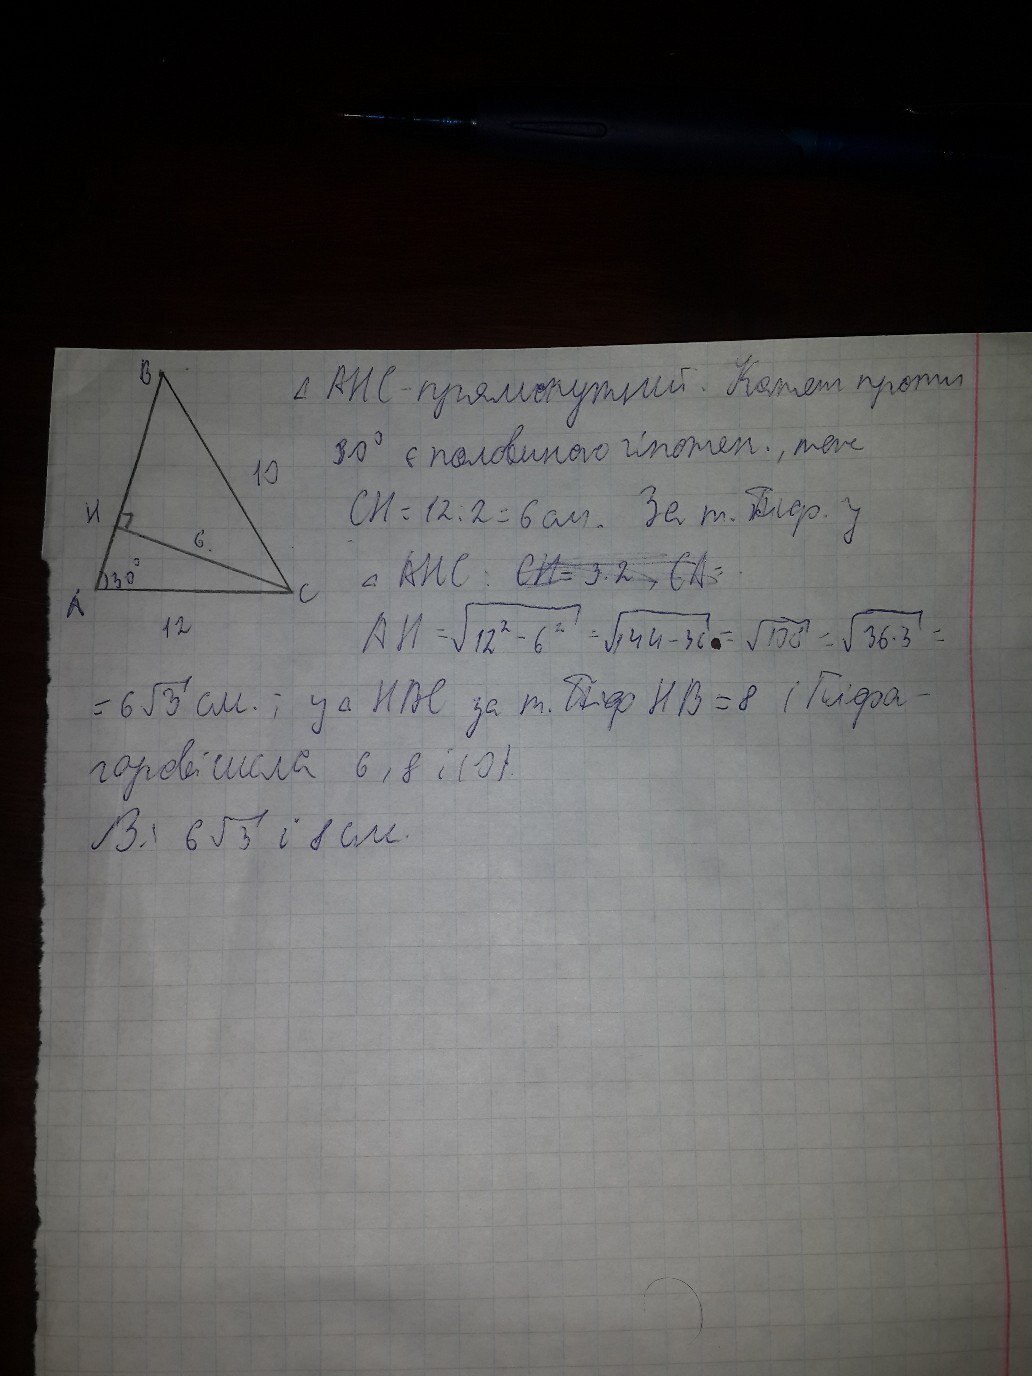 B
10
H
6
A
30°
C
12
△ AHC - прямокутний. Катет проти
30° є половиною гіпотен., тож
CH = 12:2 = 6 см. За т. Піф. у
△ AHC: CH = 3·2, CA =
AH = √12² - 6² = √144-36 = √108 = √36·3 =
= 6√3 см.; у △ HBC за т. Піф HB = 8 (Піфа-
горові числа 6, 8 і 10).
В: 6√3 і 8 см.